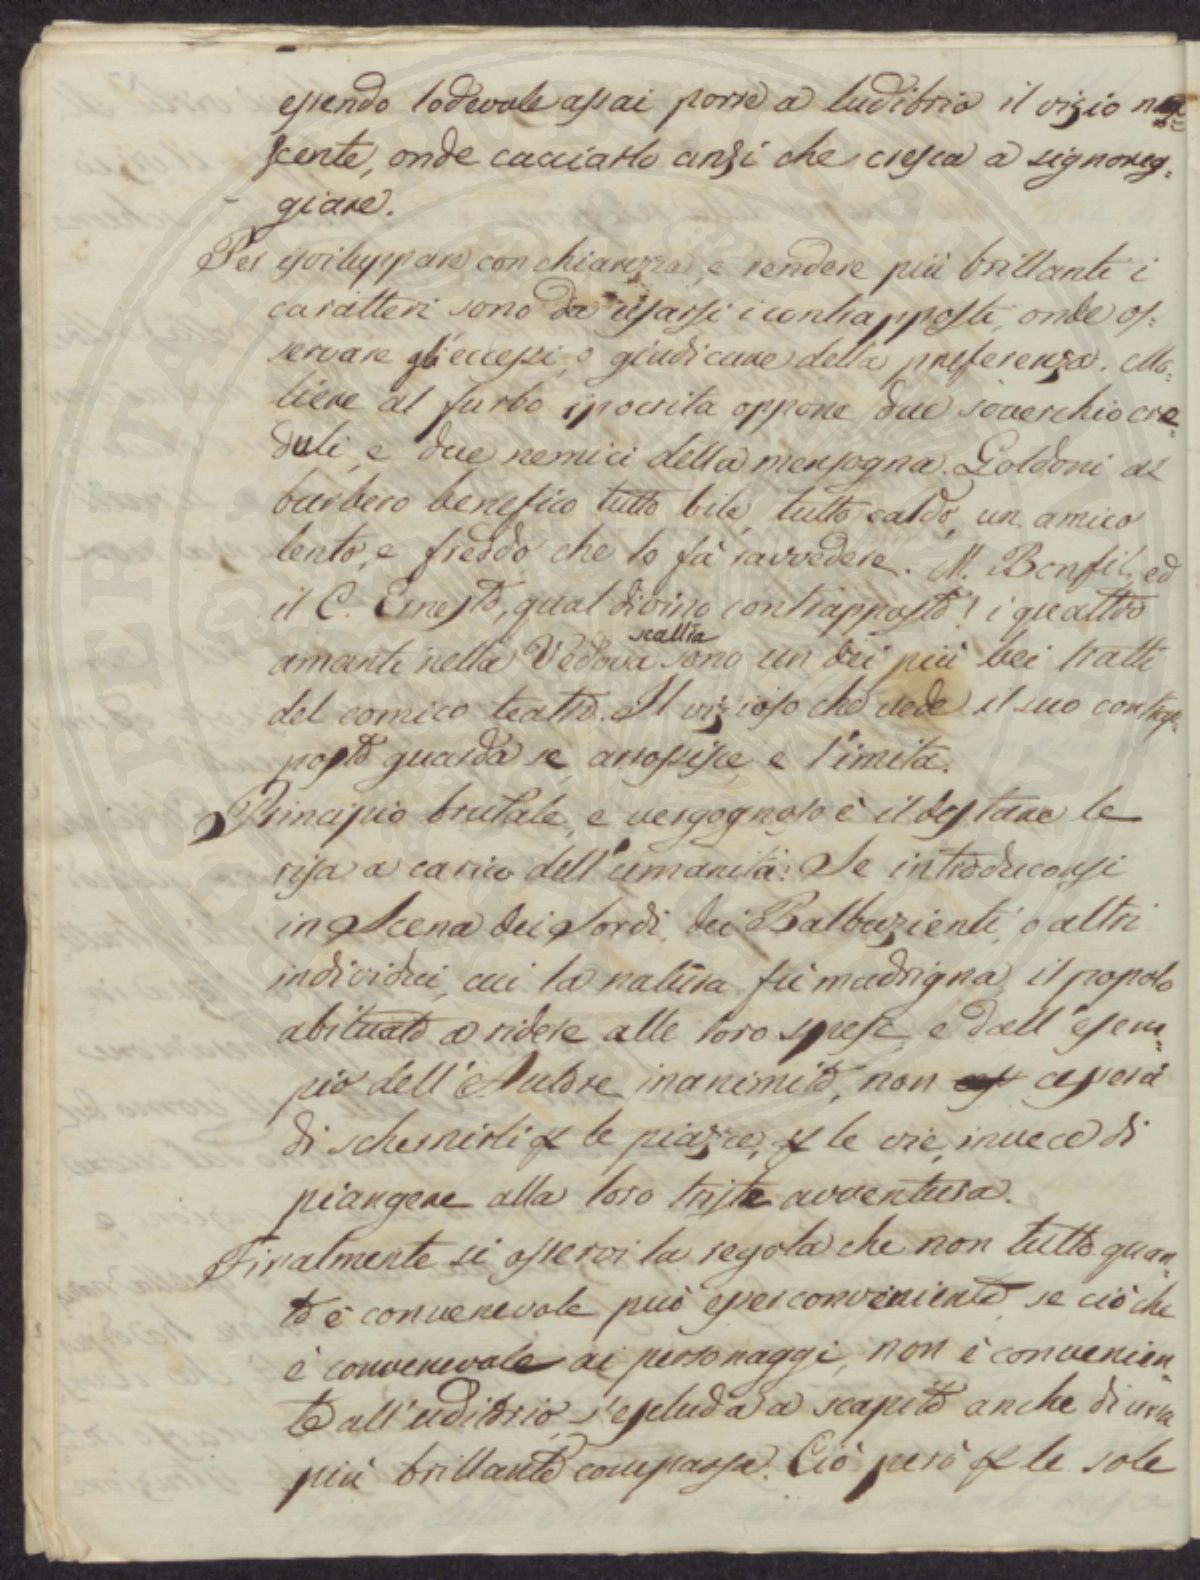 essendo lodevole assai porre a ludibrio il vizio na
scente, onde cacciarlo anzi che cresca a signoreg=
giare.
Per isviluppare con chiarezza, e rendere più brillanti i
caratteri sono da usarsi i contrapposti, onde os=
servare gli eccessi, e giudicare della preferenza. Mo=
liere al furbo ipocrita oppone due soverchio cre=
duli, e due nemici della mensogna. Goldoni al
burbero benefico tutto bile, tutto caldo, un amico
lento, e freddo che lo fà ravvedere. M. Bonfil, ed
il C. Ernesto, qual divino contrapposto! i quattro
scaltra
amanti nella Vedova sono un dei più bei tratti
del comico teatro. Il vizioso che vede il suo contrap=
posto guarda se, arrossisce, e l'imita.
Principio brutale, e vergognoso è il destare le
risa a carico dell'umanità. Se introduconsi
in Scena dei Sordi, dei Balbuzienti, o altri
individui, cui la natura fù madrigna, il popolo
abituato a ridere alle loro spese, e dall'esem=
pio dell'Autore inanimito, non cesserà
di schernirli p le piazze, p le vie, invece di
piangere alla loro triste avventura.
Finalmente si osservi la regola che non tutto quan=
to è convenevole può esser conveniente, se ciò che
è convenevole ai personaggi, non è convenien=
te all'uditorio, s'escluda a scapito anche di una
più brillante comparsa. Ciò però p le sole